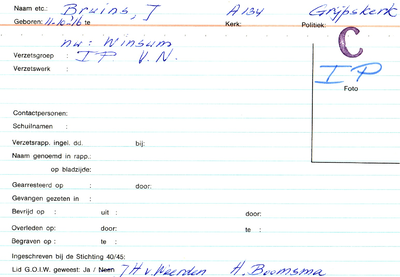 Naam etc.: Bruins, J A 134 Grijpskerk
Geboren: 11-10-'16 te Kerk: Politiek:
C
nu: Winsum
Verzetsgroep : I P V.N.
Verzetswerk :
I P
Foto
Contactpersonen:
Schuilnamen :
Verzetsrapp. ingel. dd. bij:
Naam genoemd in rapp.:
op bladzijde:
Gearresteerd op : door:
Gevangen gezeten in :
Bevrijd op : uit : door:
Overleden op: door: te :
Begraven op : te :
Ingeschreven bij de Stichting 40/45:
Lid G.O.I.W. geweest: Ja / Neen JH v. Weerden H. Boomsma